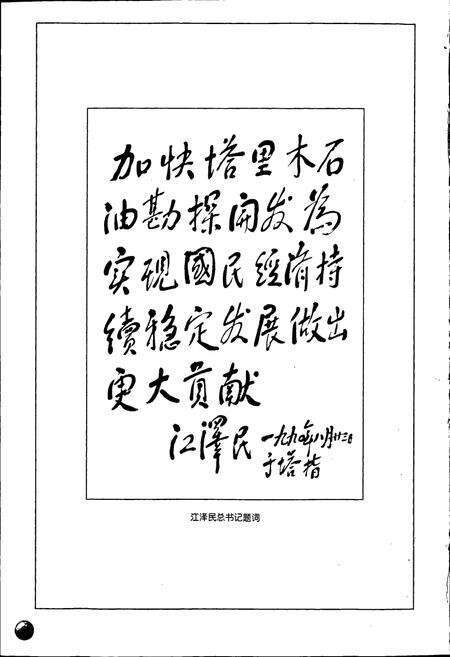 加快塔里木石
油勘探開发為
实现國民經济持
續稳定发展做出
更大贡献
江澤民 一九九〇年八月廿三日
于塔指
江泽民总书记题词